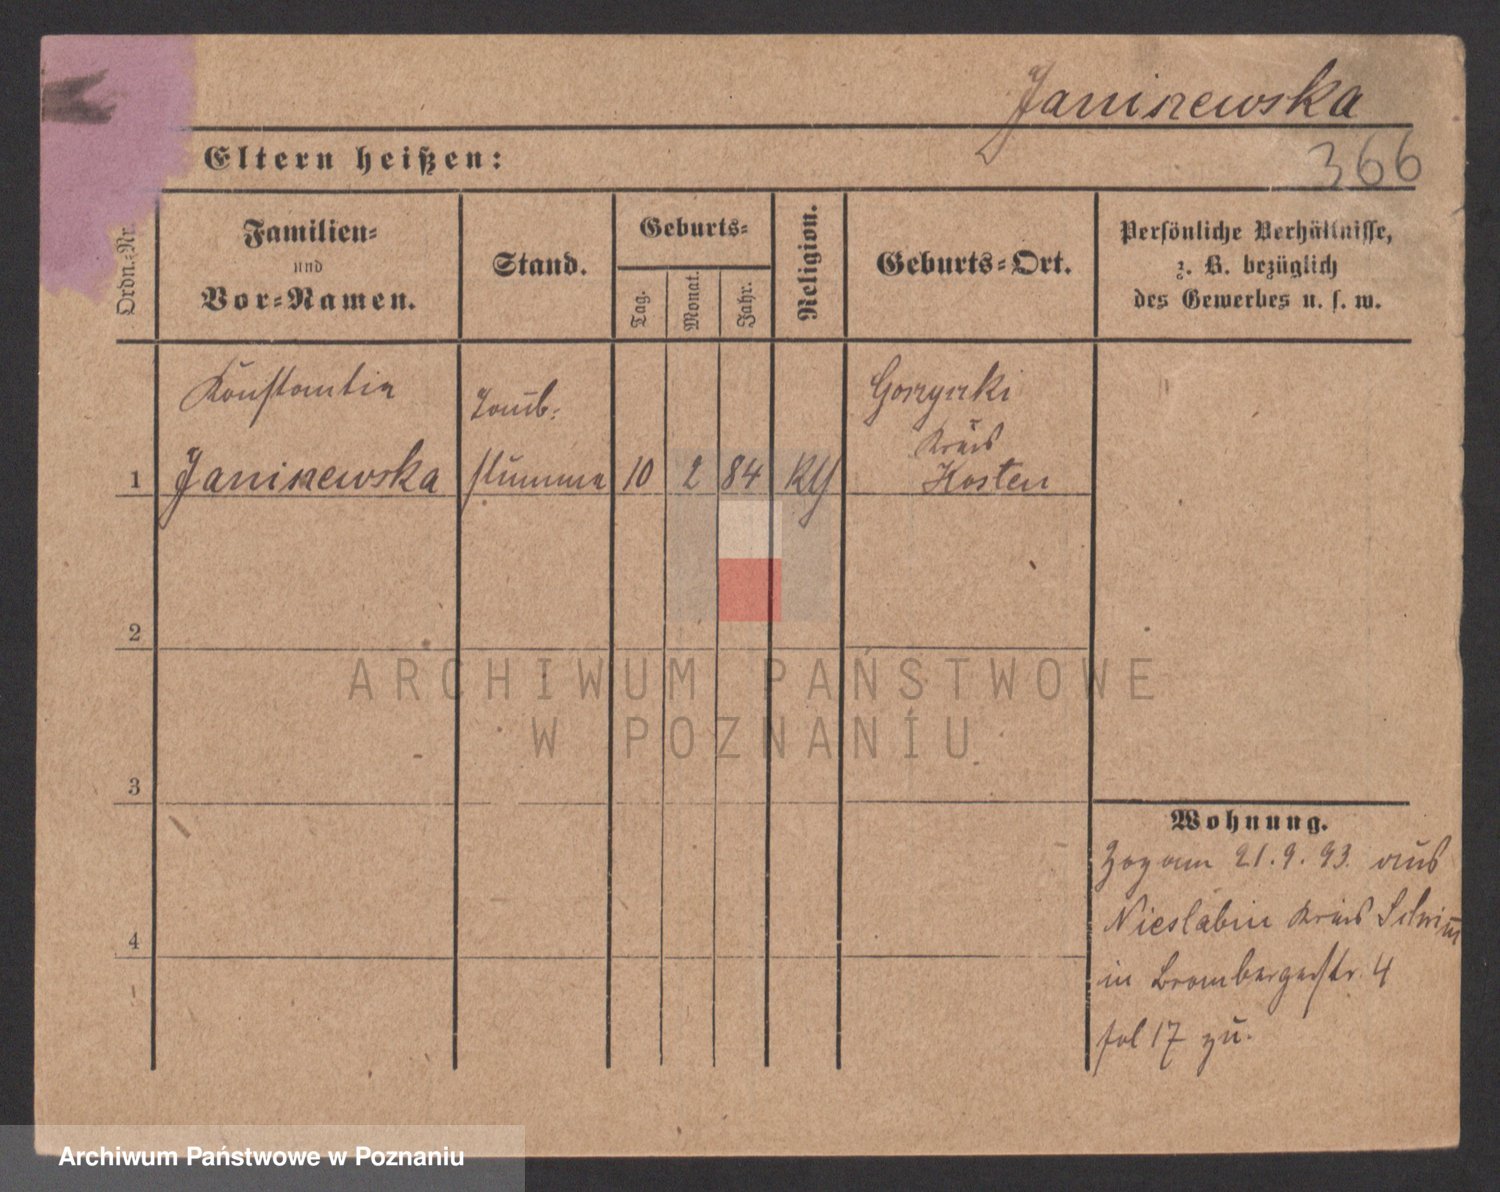 Janiszewska
366
Eltern heißen:
Ordn.-Nr.
Familien-
und
Vor-Namen.
Stand.
Geburts-
Tag.
Monat.
Jahr.
Religion.
Geburts-Ort.
Persönliche Verhältnisse,
z. B. bezüglich
des Gewerbes u. s. w.
Konstantia
Taub-
Kreis
1 Janiszewska stumme 10 2 84 Kosten
2
3
4
Wohnung.
Zog am 21.9.93. aus
Nieslabin Kreis Schrimm
in Brombergerstr. 4
fol 17 zu.
ARCHIWUM PAŃSTWOWE
W POZNANIU
Archiwum Państwowe w Poznaniu